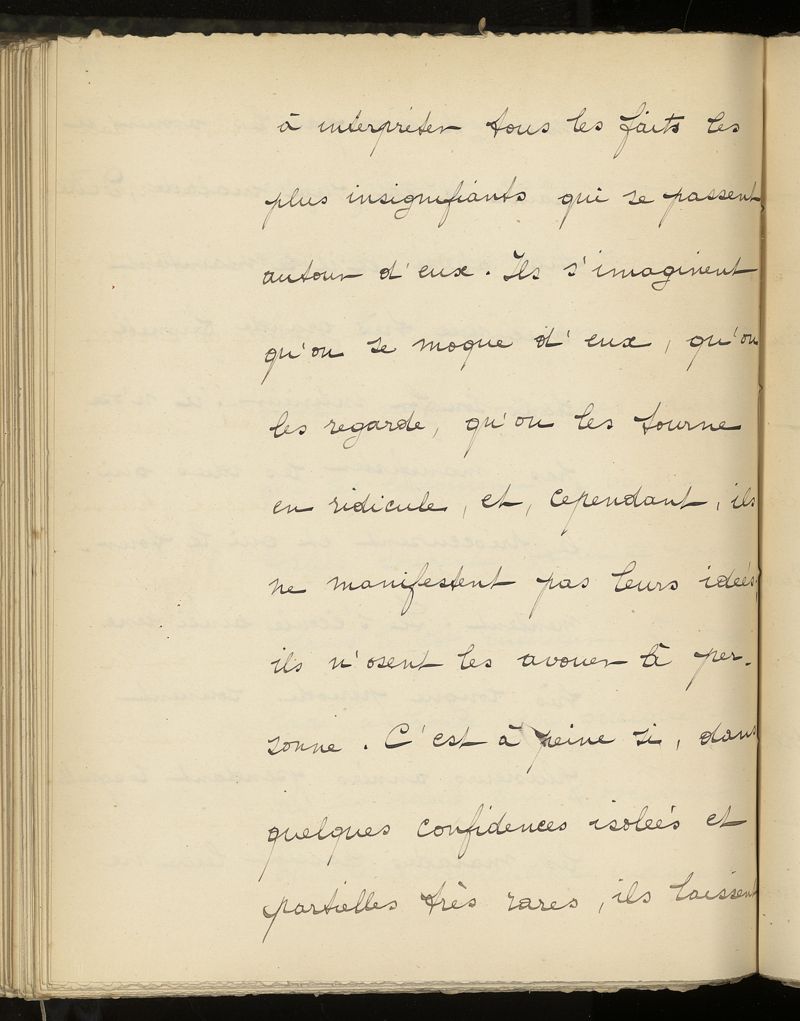 à interpréter tous les faits les
plus insignifiants qui se passent,
autour d'eux. Ils s'imaginent
qu'on se moque d'eux, qu'on
les regarde, qu'on les tourne
en ridicule, et, cependant, ils
ne manifestent pas leurs ideés,
ils n'osent les avouer à per-
sonne. C'est à peine si, dans
quelques confidences isoleés et
partielles très rares, ils laissent